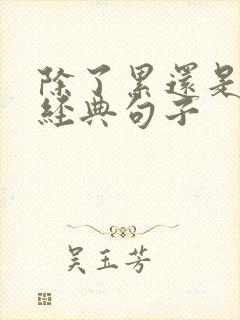 除了累還是
經典句子
吳玉芳